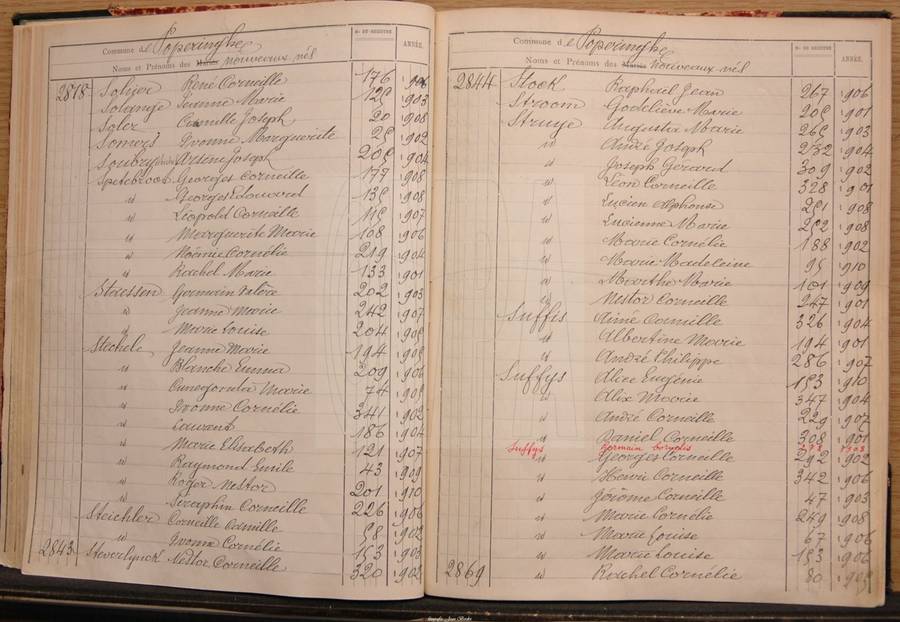 Commune de Poperinghe
Nos DU REGISTRE
ANNÉE.
Noms et Prénoms des Mariés nouveaux nés
2818 Solijer René Corneille 176 1906
Solange Jeanne Marie 125 1903
Soler Camille Joseph 20 1908
Somers Yvonne Marguerite 25 1902
Soubry Arsène Joseph 205 1904
Spetebroot Georges Corneille 177 1908
id Georges Edouard 135 1908
id Léopold Corneille 115 1907
id Marguerite Marie 108 1906
id Noémie Cornélie 219 1904
id Rachel Marie 133 1901
Staessen Germain Valère 202 1903
id Jeanne Marie 242 1907
id Marie Louise 204 1905
Stechele Jeanne Marie 194 1905
id Blanche Emma 209 1906
id Cunegonda Marie 74 1905
id Yvonne Cornélie 341 1902
id Laurent 186 1904
id Marie Elisabeth 121 1907
id Raymond Emile 43 1909
id Roger Nestor 201 1910
id Séraphin Corneille 226 1906
Steichler Corneille Camille 58 1902
id Yvonne Cornélie 153 1903
2843 Steverlynck Nestor Corneille 320 1902
Commune de Poperinghe
Nos DU REGISTRE
ANNÉE.
Noms et Prénoms des Mariés nouveaux nés
2844 Stock Raphaël Jean 267 1906
Stroom Godelieve Marie 205 1901
Struye Augusta Marie 265 1903
id André Joseph 232 1904
id Joseph Gérard 309 1902
id Léon Corneille 328 1901
id Lucien Alphonse 251 1908
id Lucienne Marie 252 1908
id Marie Cornélie 188 1902
id Marie Madeleine 95 1910
id Marthe Marie 101 1909
id Nestor Corneille 247 1901
Suffis Aimé Corneille 326 1904
id Albertine Marie 194 1901
id André Philippe 286 1907
Suffys Alice Eugénie 153 1910
id Alix Marie 347 1904
id André Corneille 229 1907
id Daniel Corneille 308 1901
Suffys Germain 278 1908
id Georges Corneille 292 1902
id Henri Corneille 342 1906
id Jérome Corneille 47 1903
id Marie Cornélie 249 1908
id Marie Louise 67 1906
id Marie Louise 153 1906
2869 id Rachel Cornélie 80 1905